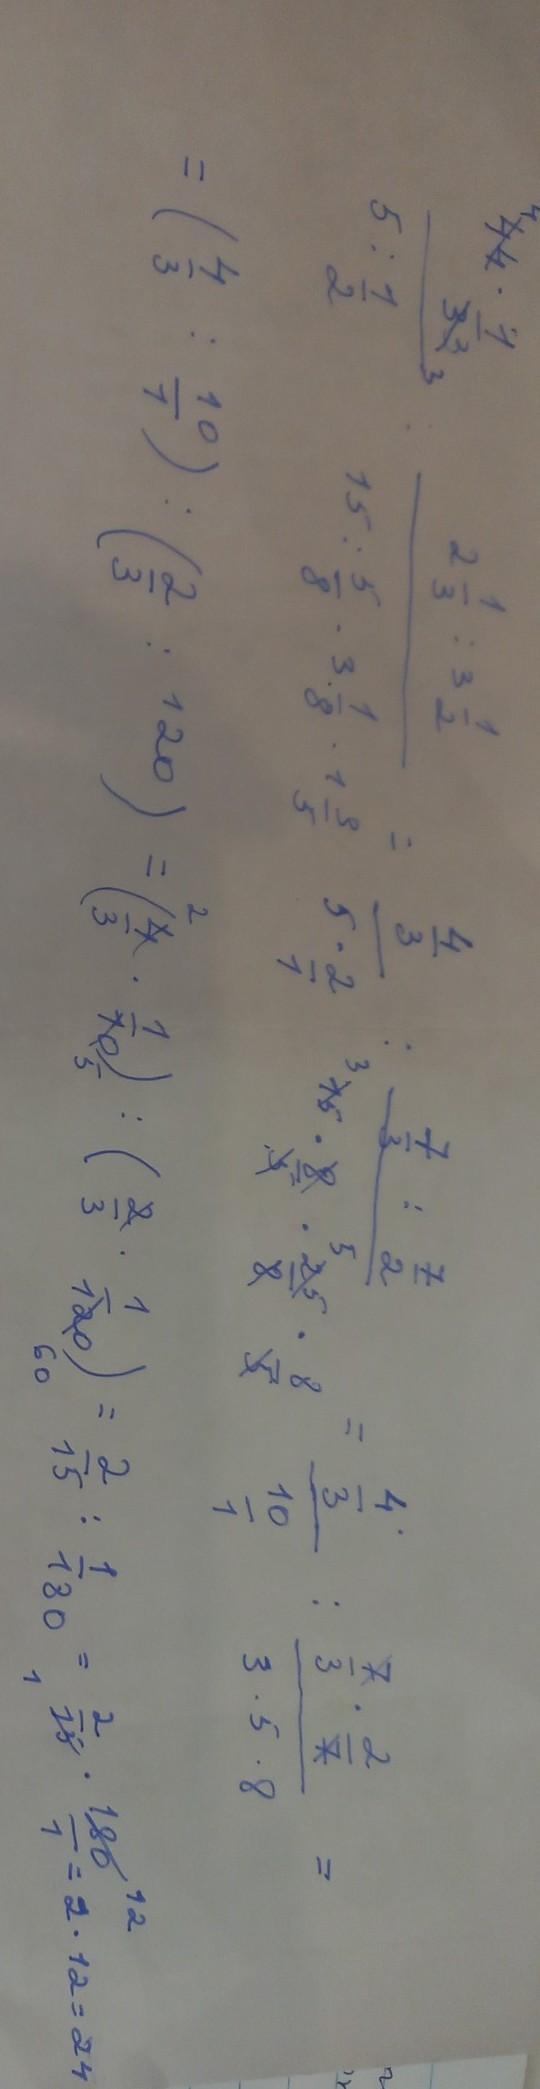 44 · 1/33 / 5 : 1/2 : 2 1/3 : 3 1/2 / 15 : 5/8 · 3 1/8 · 1 3/5 = 4/3 / 5 · 2/1 : 7/3 : 7/2 / 15 · 8/5 · 25/8 · 8/5 = 4/3 / 10/1 : 7/3 · 2/7 / 3 · 5 · 8 =
= (4/3 : 10/1) : (2/3 : 120) = (4/3 · 1/10) : (2/3 · 1/120) = 2/15 : 1/180 = 2/15 · 180/1 = 2 · 12 = 24